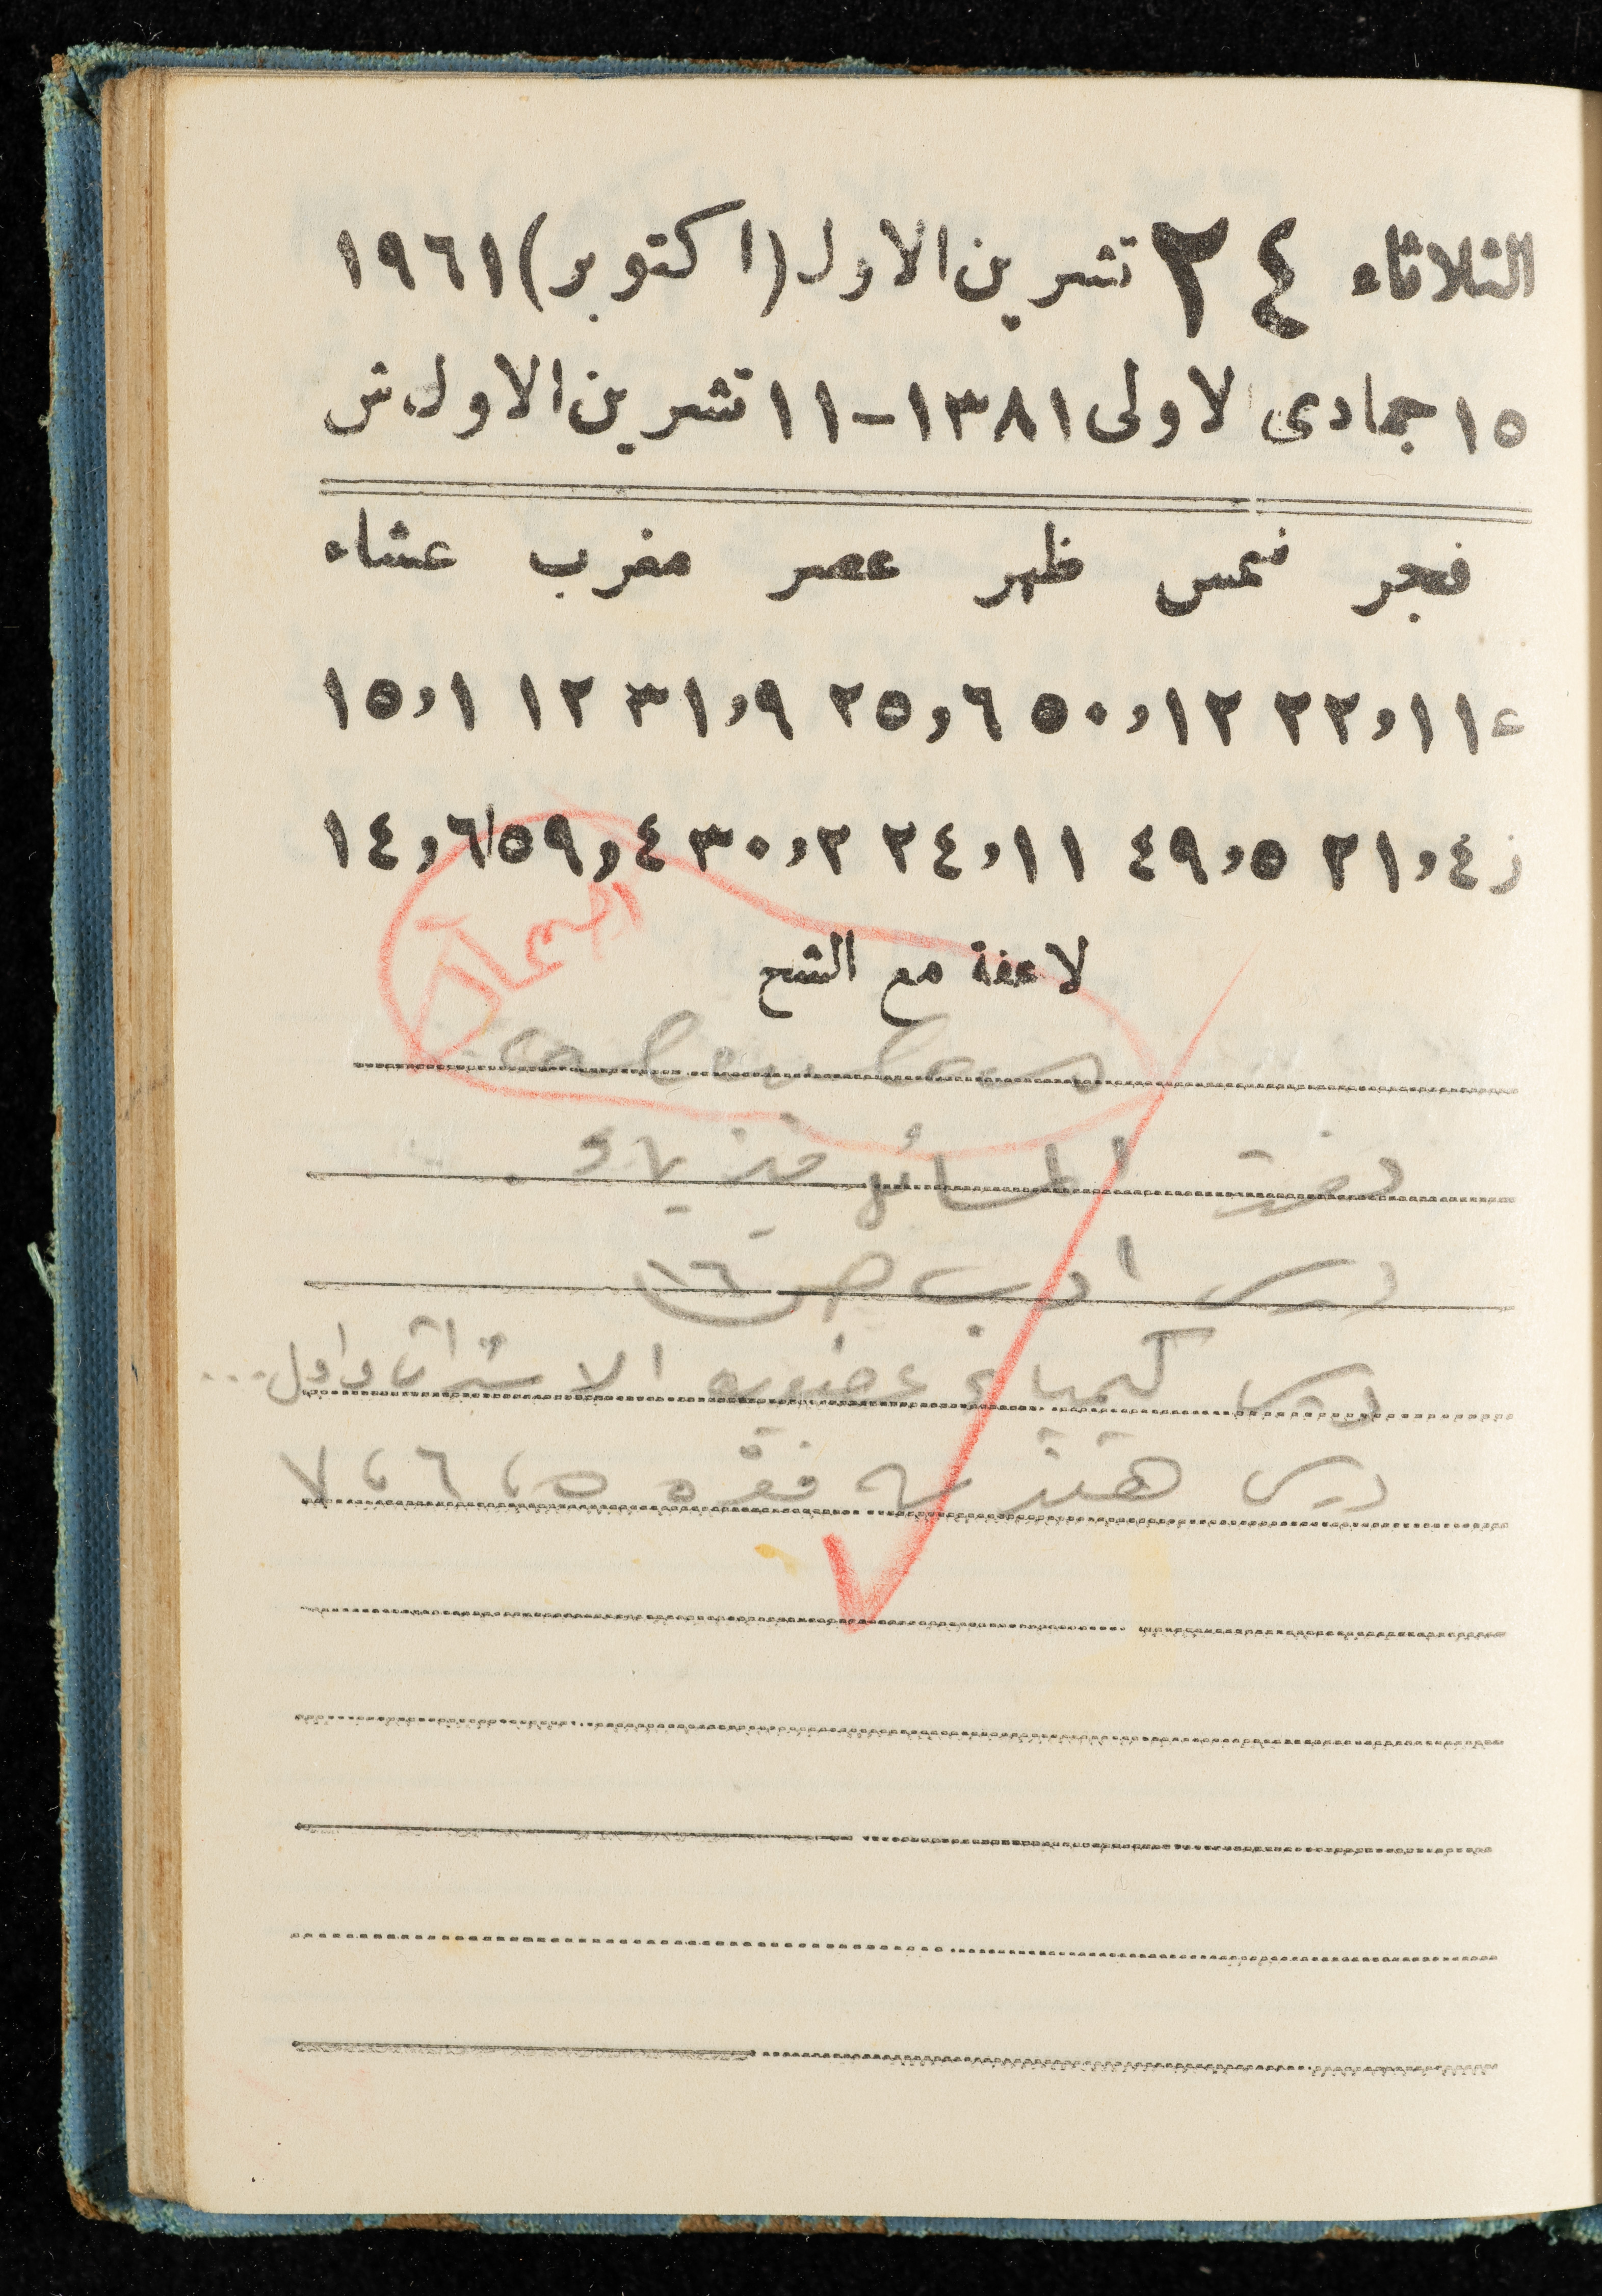 الثلاثاء ٢٤ تشرين الاول (اكتوبر) ١٩٦١
١٥ جمادى لاولى ١٣٨١ - ١١ تشرين الاول ش
فجر شمس ظهر عصر مغرب عشاء
ع ١١,٢٢ ١٢,٥٠ ٦,٢٥ ٩,٣١ ١٢ ١,١٥
ز ٤,٢١ ٥,٤٩ ١١,٢٤ ٢,٣٠ ٤,٥٩ ٦,١٤
لا عفة مع الشح
دفتر المسائل فيزياء .
درس ادب ص ١٦
درس كيمياء عضوية الاسترات واول ...
درس هندسه فقره ٥، ٦، ٧